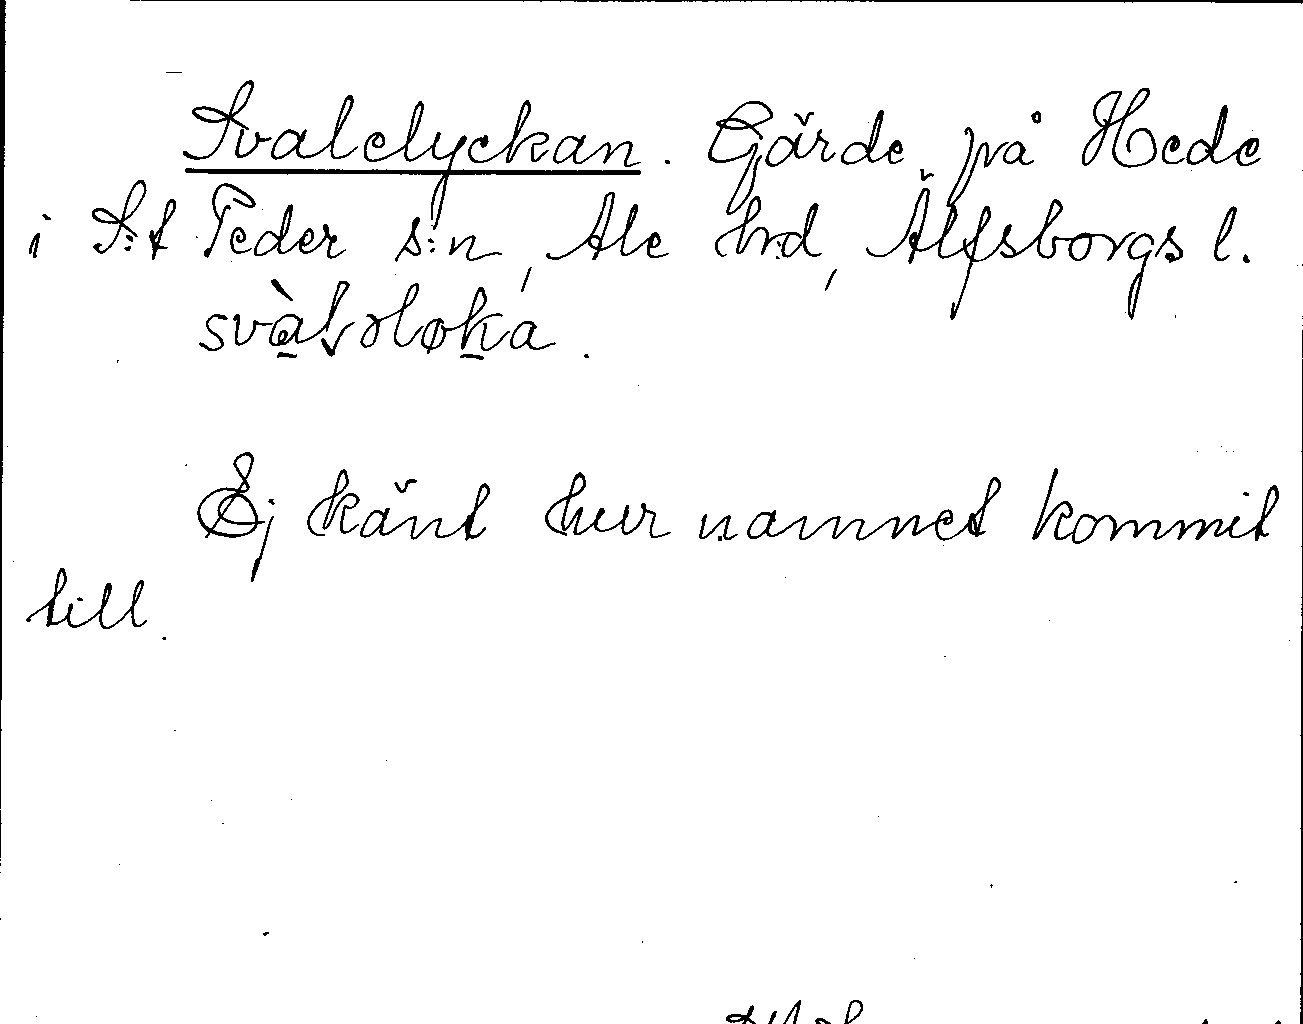 Svalelyckan. Gärde på Hede
i S:t Peder s:n, Ale hrd, Älfsborgs l.
Ej känt hur namnet kommit
till.